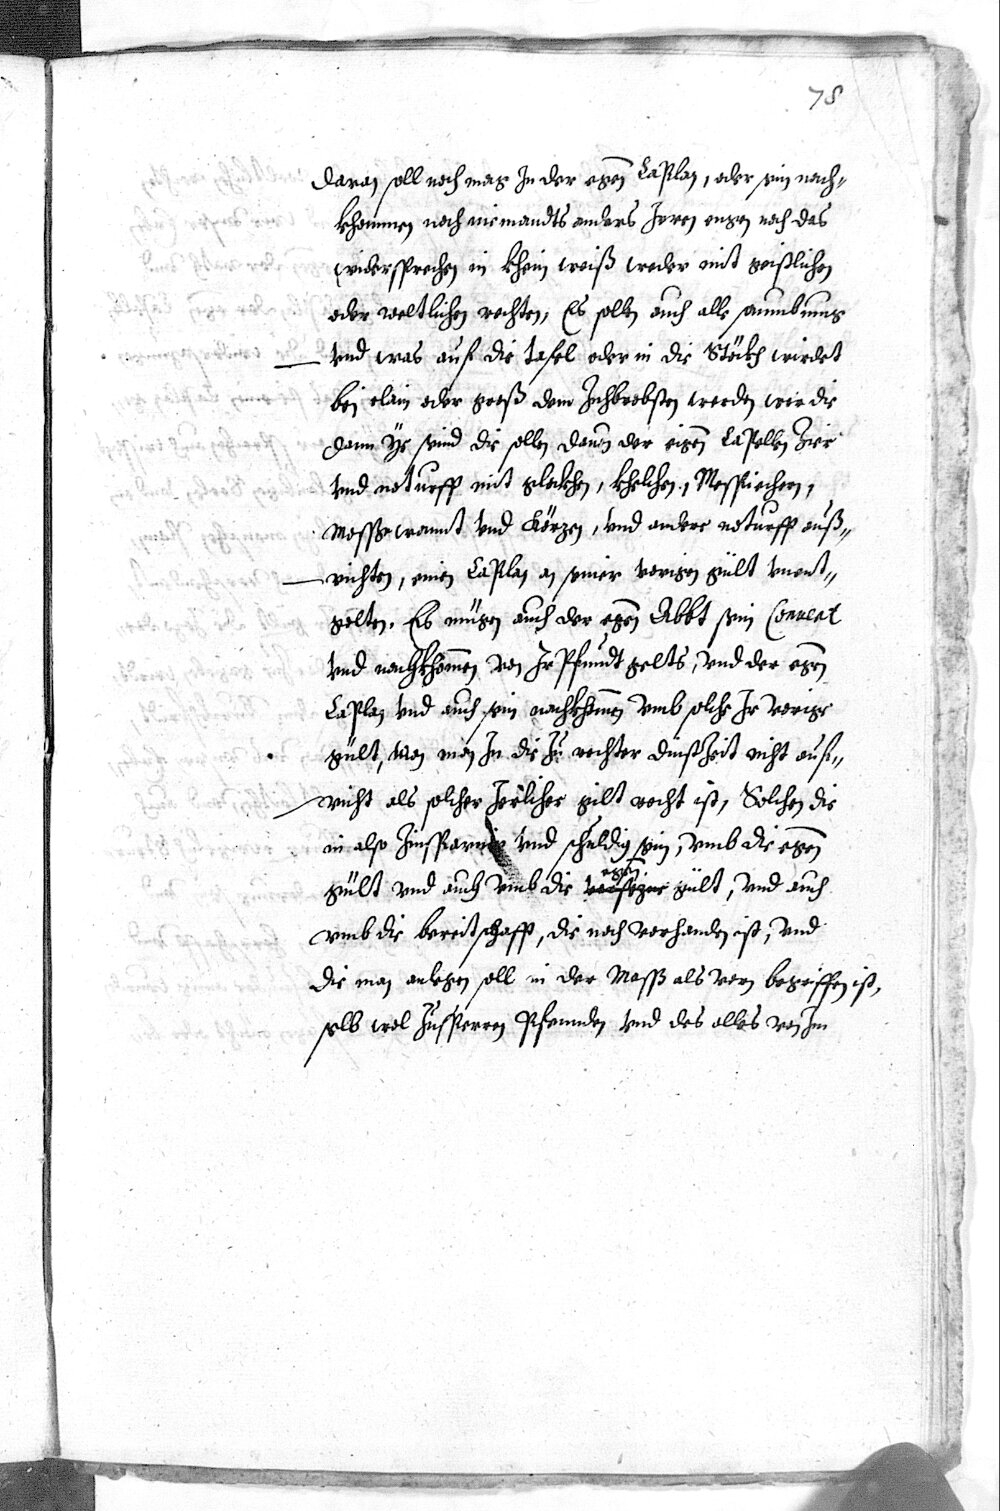 78
daran soll noch mag In der egen Caplan, oder sein nach-
khommen noch niemandts anders Irren engen noch das
widersprechen in khein weiß weder mit geistlichen
oder weltlichen rechten, Es sollen auch alle samblung
vnd was auf die tafel oder in die Stöckh wirdet
bei clain oder groß dem Zechbrobsten werden wie die
dann ÿe seind die sollen dauon der eigen Capellen Zier
vnd noturfft mit glockhen, khelchen, Messpüechern,
Messgwannt vnd Körzen, vnd andere noturfft auß-
richten, einen Caplan an seiner vorigen gült vnent-
golten. Es mügen auch der egen Abbt sein Conuent
vnd nachkhomen von Ir Pfundt gelts, vnd der egen
Caplan vnd auch sein nachkhomen vmb solche Ir vorige
gült, wan man In die Zu rechter dinstzeit nicht auß-
richt als solcher Jerlicher gült recht ist, Solchen die
in also Zinsparn vnd schuldig sein, vmb die egen
gült vnd auch vmb die egen gült, vnd auch
vmb die bereitschafft, die noch vorhanden ist, vnd
die man anlegen soll in der Mass als vorn begriffen ist,
selb wol Zusperren Pfennden vnd des alles von Im